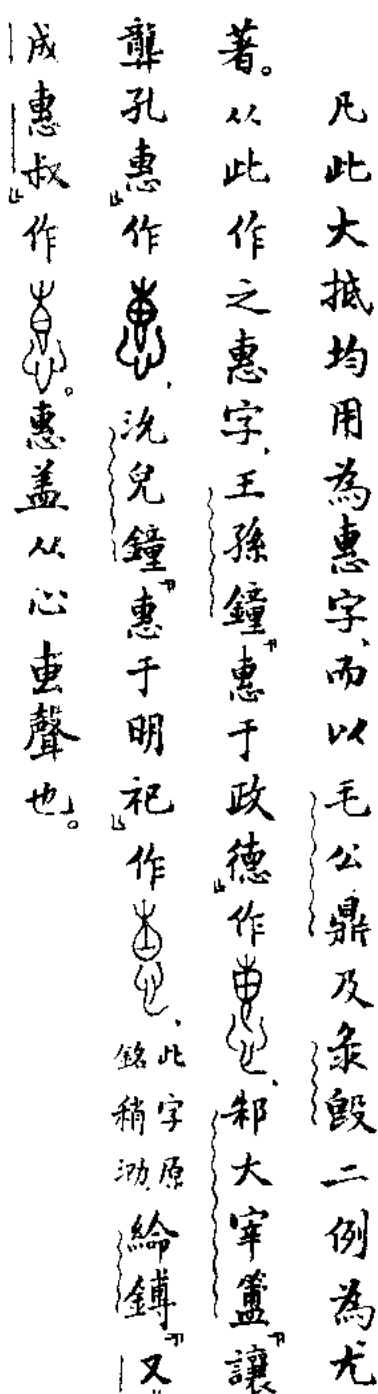 凡此大抵均用為惠字,而以毛公鼎及彔𣪘二例為尤
著。从此作之惠字,王孫鐘『惠于政德』作,邾大宰簠『讓
龏孔惠』作,沇兒鐘『惠于明祀』作,此字原銘稍泐。綸鎛『又
成惠叔』作。惠蓋从心叀聲也。